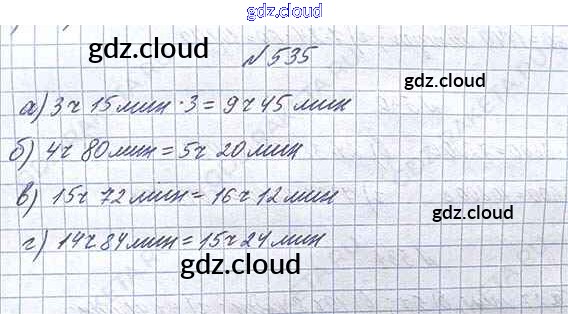 gdz.cloud
gdz.cloud
№535
gdz.cloud
а) 3ч 15мин·3=9ч 45 мин
б) 4ч 80мин=5ч 20мин
в) 15ч 72мин=16ч 12мин
gdz.cloud
г) 14ч 84мин=15ч 24мин
gdz.cloud